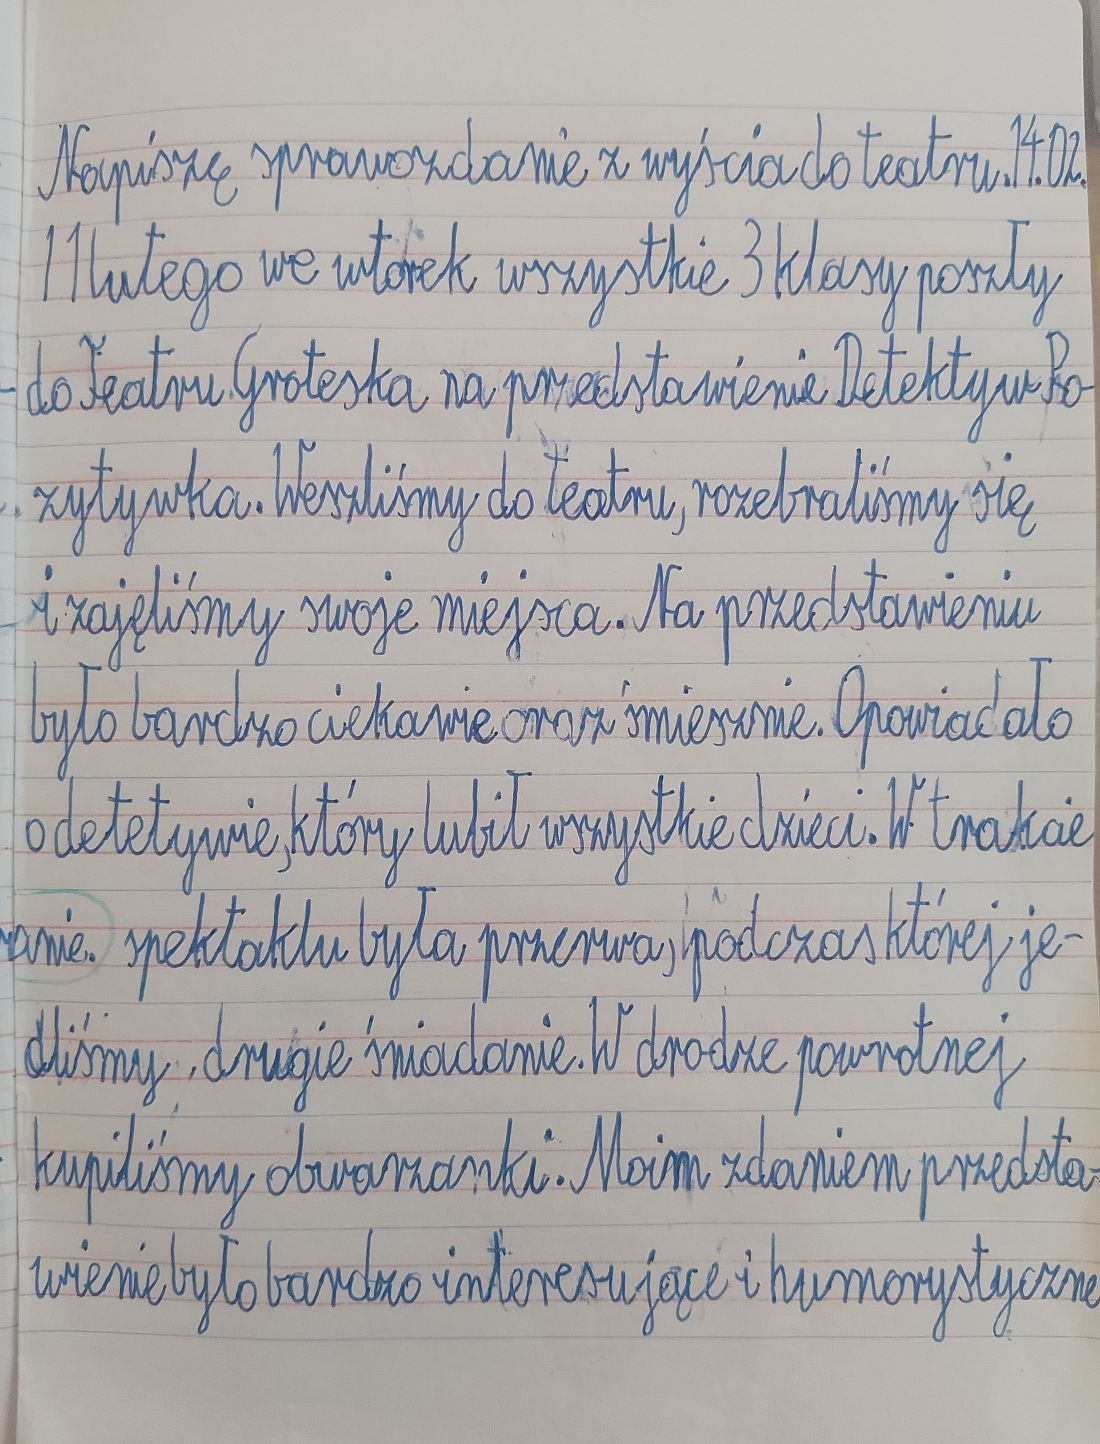 Napiszę sprawozdanie z wyjścia do teatru. 14.02.
11 lutego we wtorek wszystkie 3 klasy poszły
do Teatru Groteska na przedstawienie Detektyw Po-
zytywka. Weszliśmy do teatru, rozebraliśmy się
i zajęliśmy swoje miejsca. Na przedstawieniu
było bardzo ciekawie oraz śmiesznie. Opowiadało
o detetywie, który lubił wszystkie dzieci. W trakcie
spektaklu była przerwa, podczas której je-
dliśmy drugie śniadanie. W drodze powrotnej
kupiliśmy obwarzanki. Moim zdaniem przedsta-
wienie było bardzo interesujące i humorystyczne